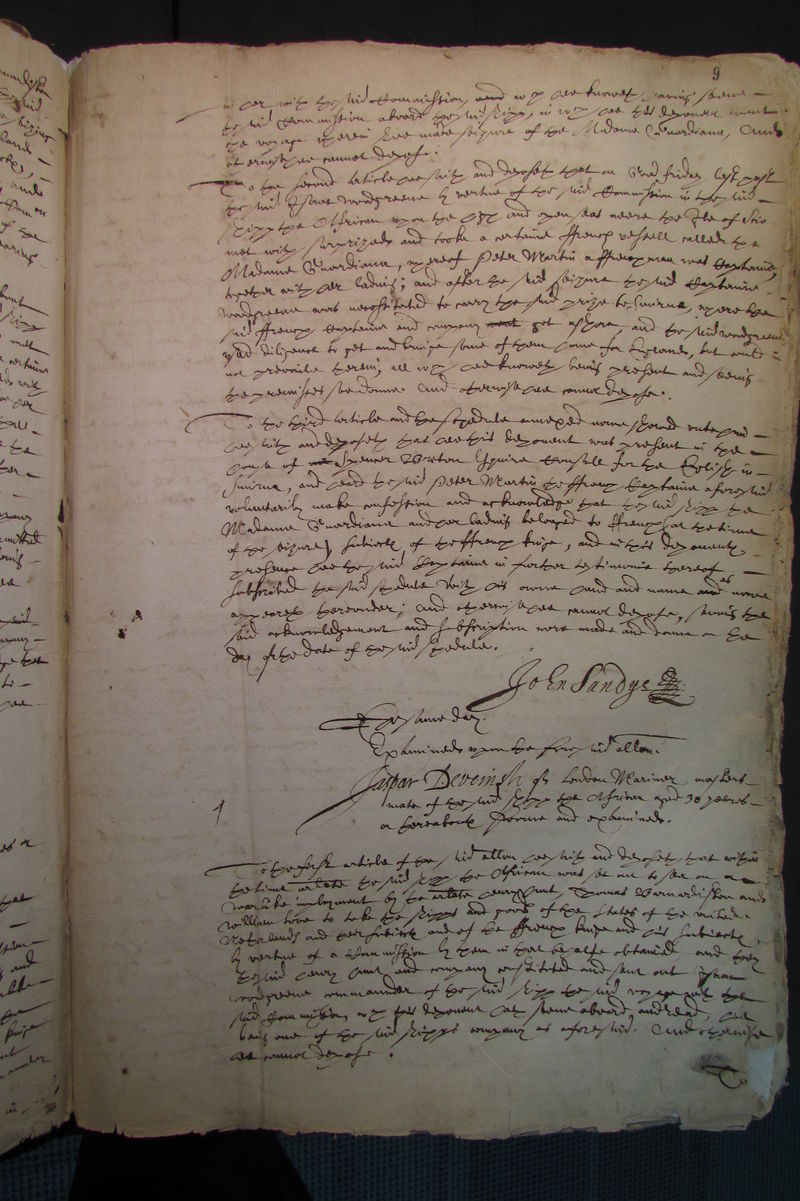 9
in her with the said Commission, and which hee knoweth, having seene
the said Commission aboard the said shipp, in which hee this deponent went
the voyage wherein shee made seizure of the Madama Guardiana, And
otherwise hee cannot depose.
To the second Article hee saith and deposeth that on Good friday last past
the said Isaac Woodgreene by vertue of the said Commission in the said
shipp the African upon the high and open seas neere the Ile of Scio
met with surprized and tooke a certaine ffrench vessell called the
Madama Guardiana, whereof Peter Martin a ffrenchman was Captaine,
together with her lading; and after the said seizure the said Captaine
Woodgreene was necessitated to carry the said prize to Smirna, where the
said ffrench Captaine and company got ashore, and the said Woodgreene
used diligence to get and bringe some of them home for England, but could
not prevaile therein; all which hee knoweth being present and seeing
the premisses soe donne. And otherwise hee cannot depose.
To the third Article and the schedule annexed nowe showed unto him
hee saith and deposeth that hee this deponent was present in the
house of Spencer Breton Esquire Consull for the English in
Smirna, and heard the said Peter Martin the ffrench Captaine aforesaid
voluntarily make confession and acknowledge that the said shipp the
Madama Guardiana and her lading belonged to ffrench at the time
of the seizure, subiects of the ffrench kinge, and in this deponents
presence hee the said Captaine in further testimonie thereof
subscribed the said schedule with his owne hand and name as nowe
appeareth thereunder; and otherwise hee cannot depose, saving the
said acknowledgement and subscription were made and donne on the
day of the date of the said schedule.
John Sandys
The same day.
Examined upon the foresaid allon.
Jaspar Deveinsh of London Mariner, masters
mate of the said shipp the African aged 30 yeeres
or thereabouts sworne and examined.
To the first article of the said allon hee saith and deposeth, that within
the time arlate the said shipp the African was set out to sea on a
warlike imployment by the arlate Henry Hunt, Thomas Barnardiston and
William Love to take the shipps and goods of the States of the united
Netherlands and their subiects and of the ffrench kinge and his subiects,
by vertue of a Commission by them in that behalfe obtained, and they
the said Henry Hunt and company constituted and sent out Isaac
Woodgreene commander of the said shipp the said voyage with the
said Commission, which this deponent hath seene aboard, and read, hee
being one of the said shipps company as aforesaid. And otherwise
hee cannot depose.
To